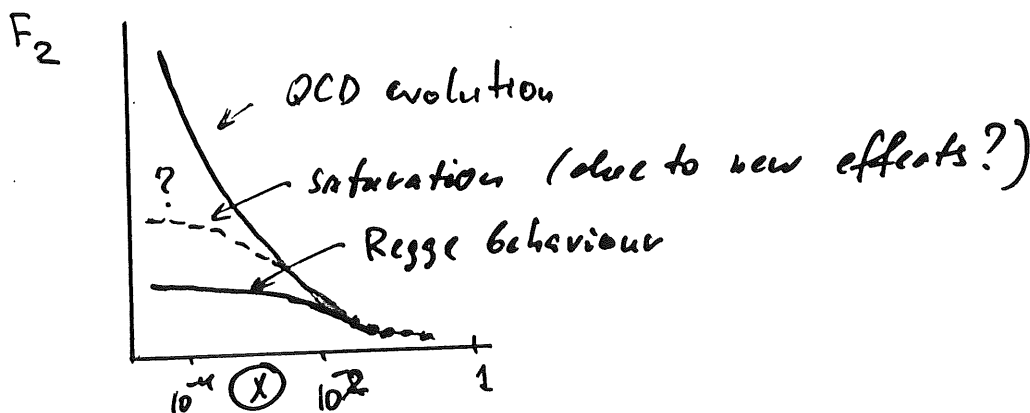 F₂
QCD evolution
? saturation (due to new effects?)
Regge behaviour
10⁻⁴ X 10⁻² 1